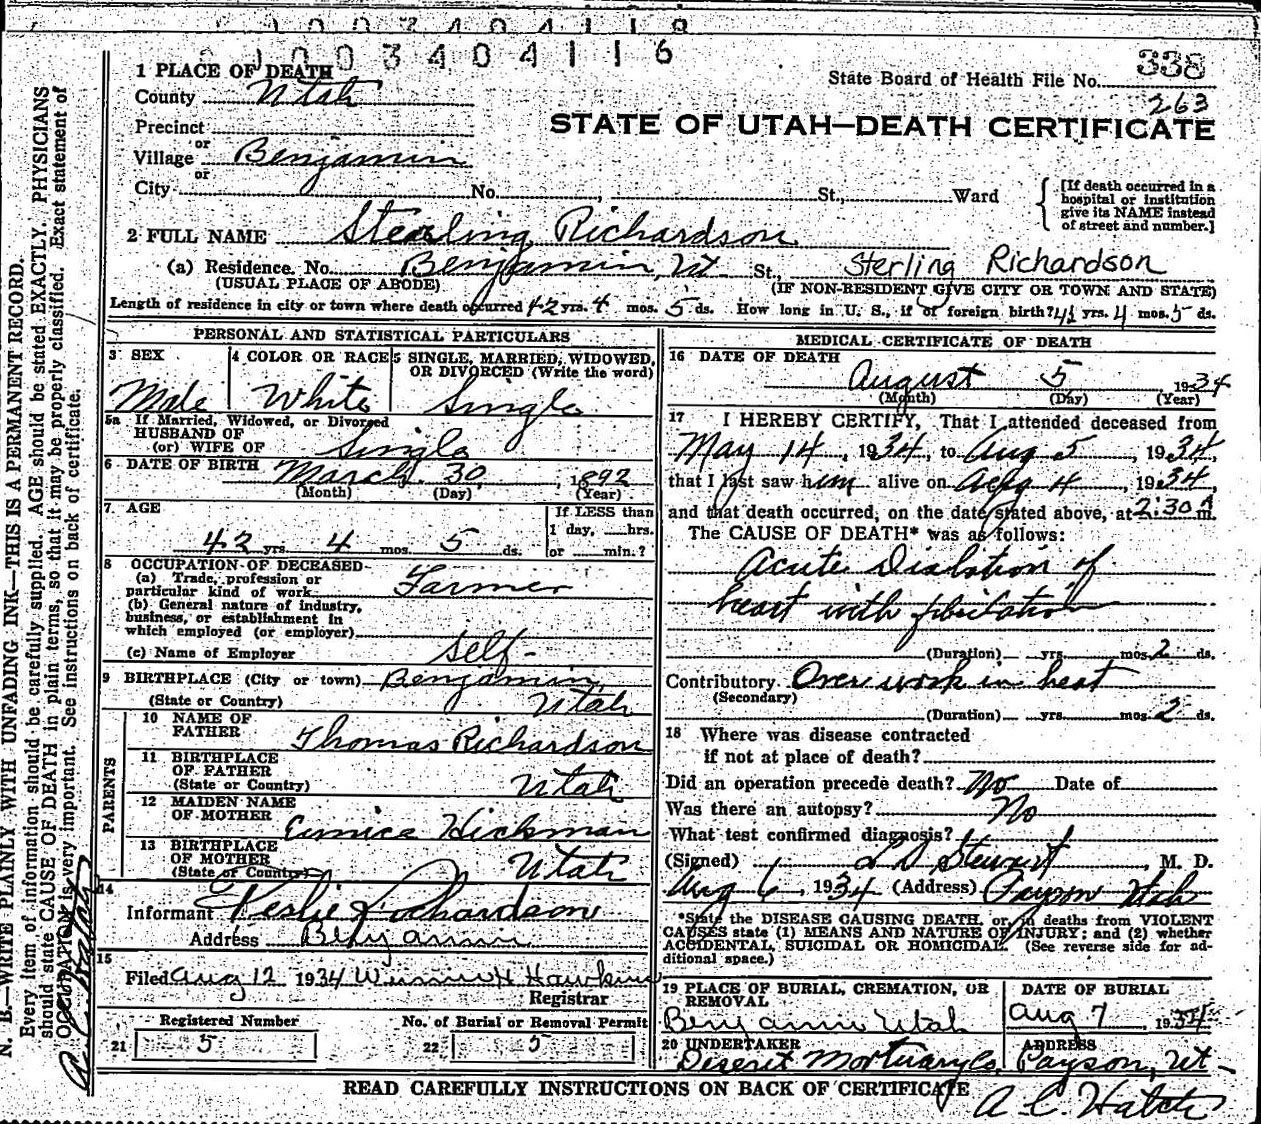 1003404116
1 PLACE OF DEATH
State Board of Health File No. 338
County Utah
263
Precinct
STATE OF UTAH—DEATH CERTIFICATE
or
Village Benjamin
or
City No. , St., Ward
[If death occurred in a hospital or institution give its NAME instead of street and number.]
2 FULL NAME Stearling Richardson
(a) Residence. No. Benjamin, Ut St., Sterling Richardson
(USUAL PLACE OF ABODE) (IF NON-RESIDENT GIVE CITY OR TOWN AND STATE)
Length of residence in city or town where death occurred 42 yrs. 4 mos. 5 ds. How long in U. S., if of foreign birth? 42 yrs. 4 mos. 5 ds.
PERSONAL AND STATISTICAL PARTICULARS
3 SEX
Male
4 COLOR OR RACE
White
5 SINGLE, MARRIED, WIDOWED, OR DIVORCED (Write the word)
Single
5a If Married, Widowed, or Divorced
HUSBAND OF
(or) WIFE OF Single
6 DATE OF BIRTH March 30, 1892
(Month) (Day) (Year)
7 AGE
42 yrs. 4 mos. 5 ds.
If LESS than
1 day, hrs.
or min.?
8 OCCUPATION OF DECEASED
(a) Trade, profession or
particular kind of work Farmer
(b) General nature of industry,
business, or establishment in
which employed (or employer)
(c) Name of Employer Self-
9 BIRTHPLACE (City or town) Benjamin,
(State or Country) Utah
PARENTS
10 NAME OF
FATHER Thomas Richardson
11 BIRTHPLACE
OF FATHER
(State or Country) Utah
12 MAIDEN NAME
OF MOTHER Eunice Hickman
13 BIRTHPLACE
OF MOTHER
(State or Country) Utah
14
Informant Leslie Richardson
Address Benjamin
15
Filed Aug 12 1934 Winnie H Hawkins
Registrar
Registered Number
21 5
No. of Burial or Removal Permit
22 5
MEDICAL CERTIFICATE OF DEATH
16 DATE OF DEATH
August 5, 1934
(Month) (Day) (Year)
17 I HEREBY CERTIFY, That I attended deceased from
May 14, 1934, to Aug 5, 1934,
that I last saw him alive on Aug 4, 1934,
and that death occurred, on the date stated above, at 2:30 A m.
The CAUSE OF DEATH* was as follows:
Acute Dialation of
heart with fibrilation
(Duration) yrs. mos. 2 ds.
Contributory Over work in heat
(Secondary)
(Duration) yrs. mos. 2 ds.
18 Where was disease contracted
if not at place of death?
Did an operation precede death? No Date of
Was there an autopsy? No
What test confirmed diagnosis?
(Signed) L D Stewart, M. D.
Aug 6, 1934 (Address) Payson Utah
*State the DISEASE CAUSING DEATH, or, in deaths from VIOLENT
CAUSES state (1) MEANS AND NATURE OF INJURY; and (2) whether
ACCIDENTAL, SUICIDAL OR HOMICIDAL. (See reverse side for ad-
ditional space.)
19 PLACE OF BURIAL, CREMATION, OR
REMOVAL
Benjamin Utah
DATE OF BURIAL
Aug 7, 1934
20 UNDERTAKER
Deseret Mortuary Co.
ADDRESS
Payson, Ut
READ CAREFULLY INSTRUCTIONS ON BACK OF CERTIFICATE
A. C. Hatch
N. B.—WRITE PLAINLY WITH UNFADING INK—THIS IS A PERMANENT RECORD.
Every item of information should be carefully supplied. AGE should be stated EXACTLY. PHYSICIANS
should state CAUSE OF DEATH in plain terms, so that it may be properly classified. Exact statement of
OCCUPATION is very important. See instructions on back of certificate.